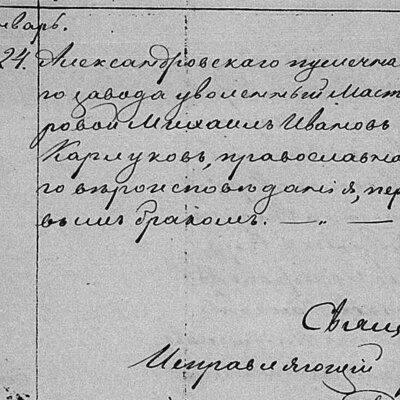 нварь.
24. Александровскаго пушечна
го завода уволенный Масте
ровой Михаилъ Ивановъ
Карлуковъ, православна
го вѣроисповѣданія, пер
вымъ бракомъ. — „ —
Свящ
Исправляющій